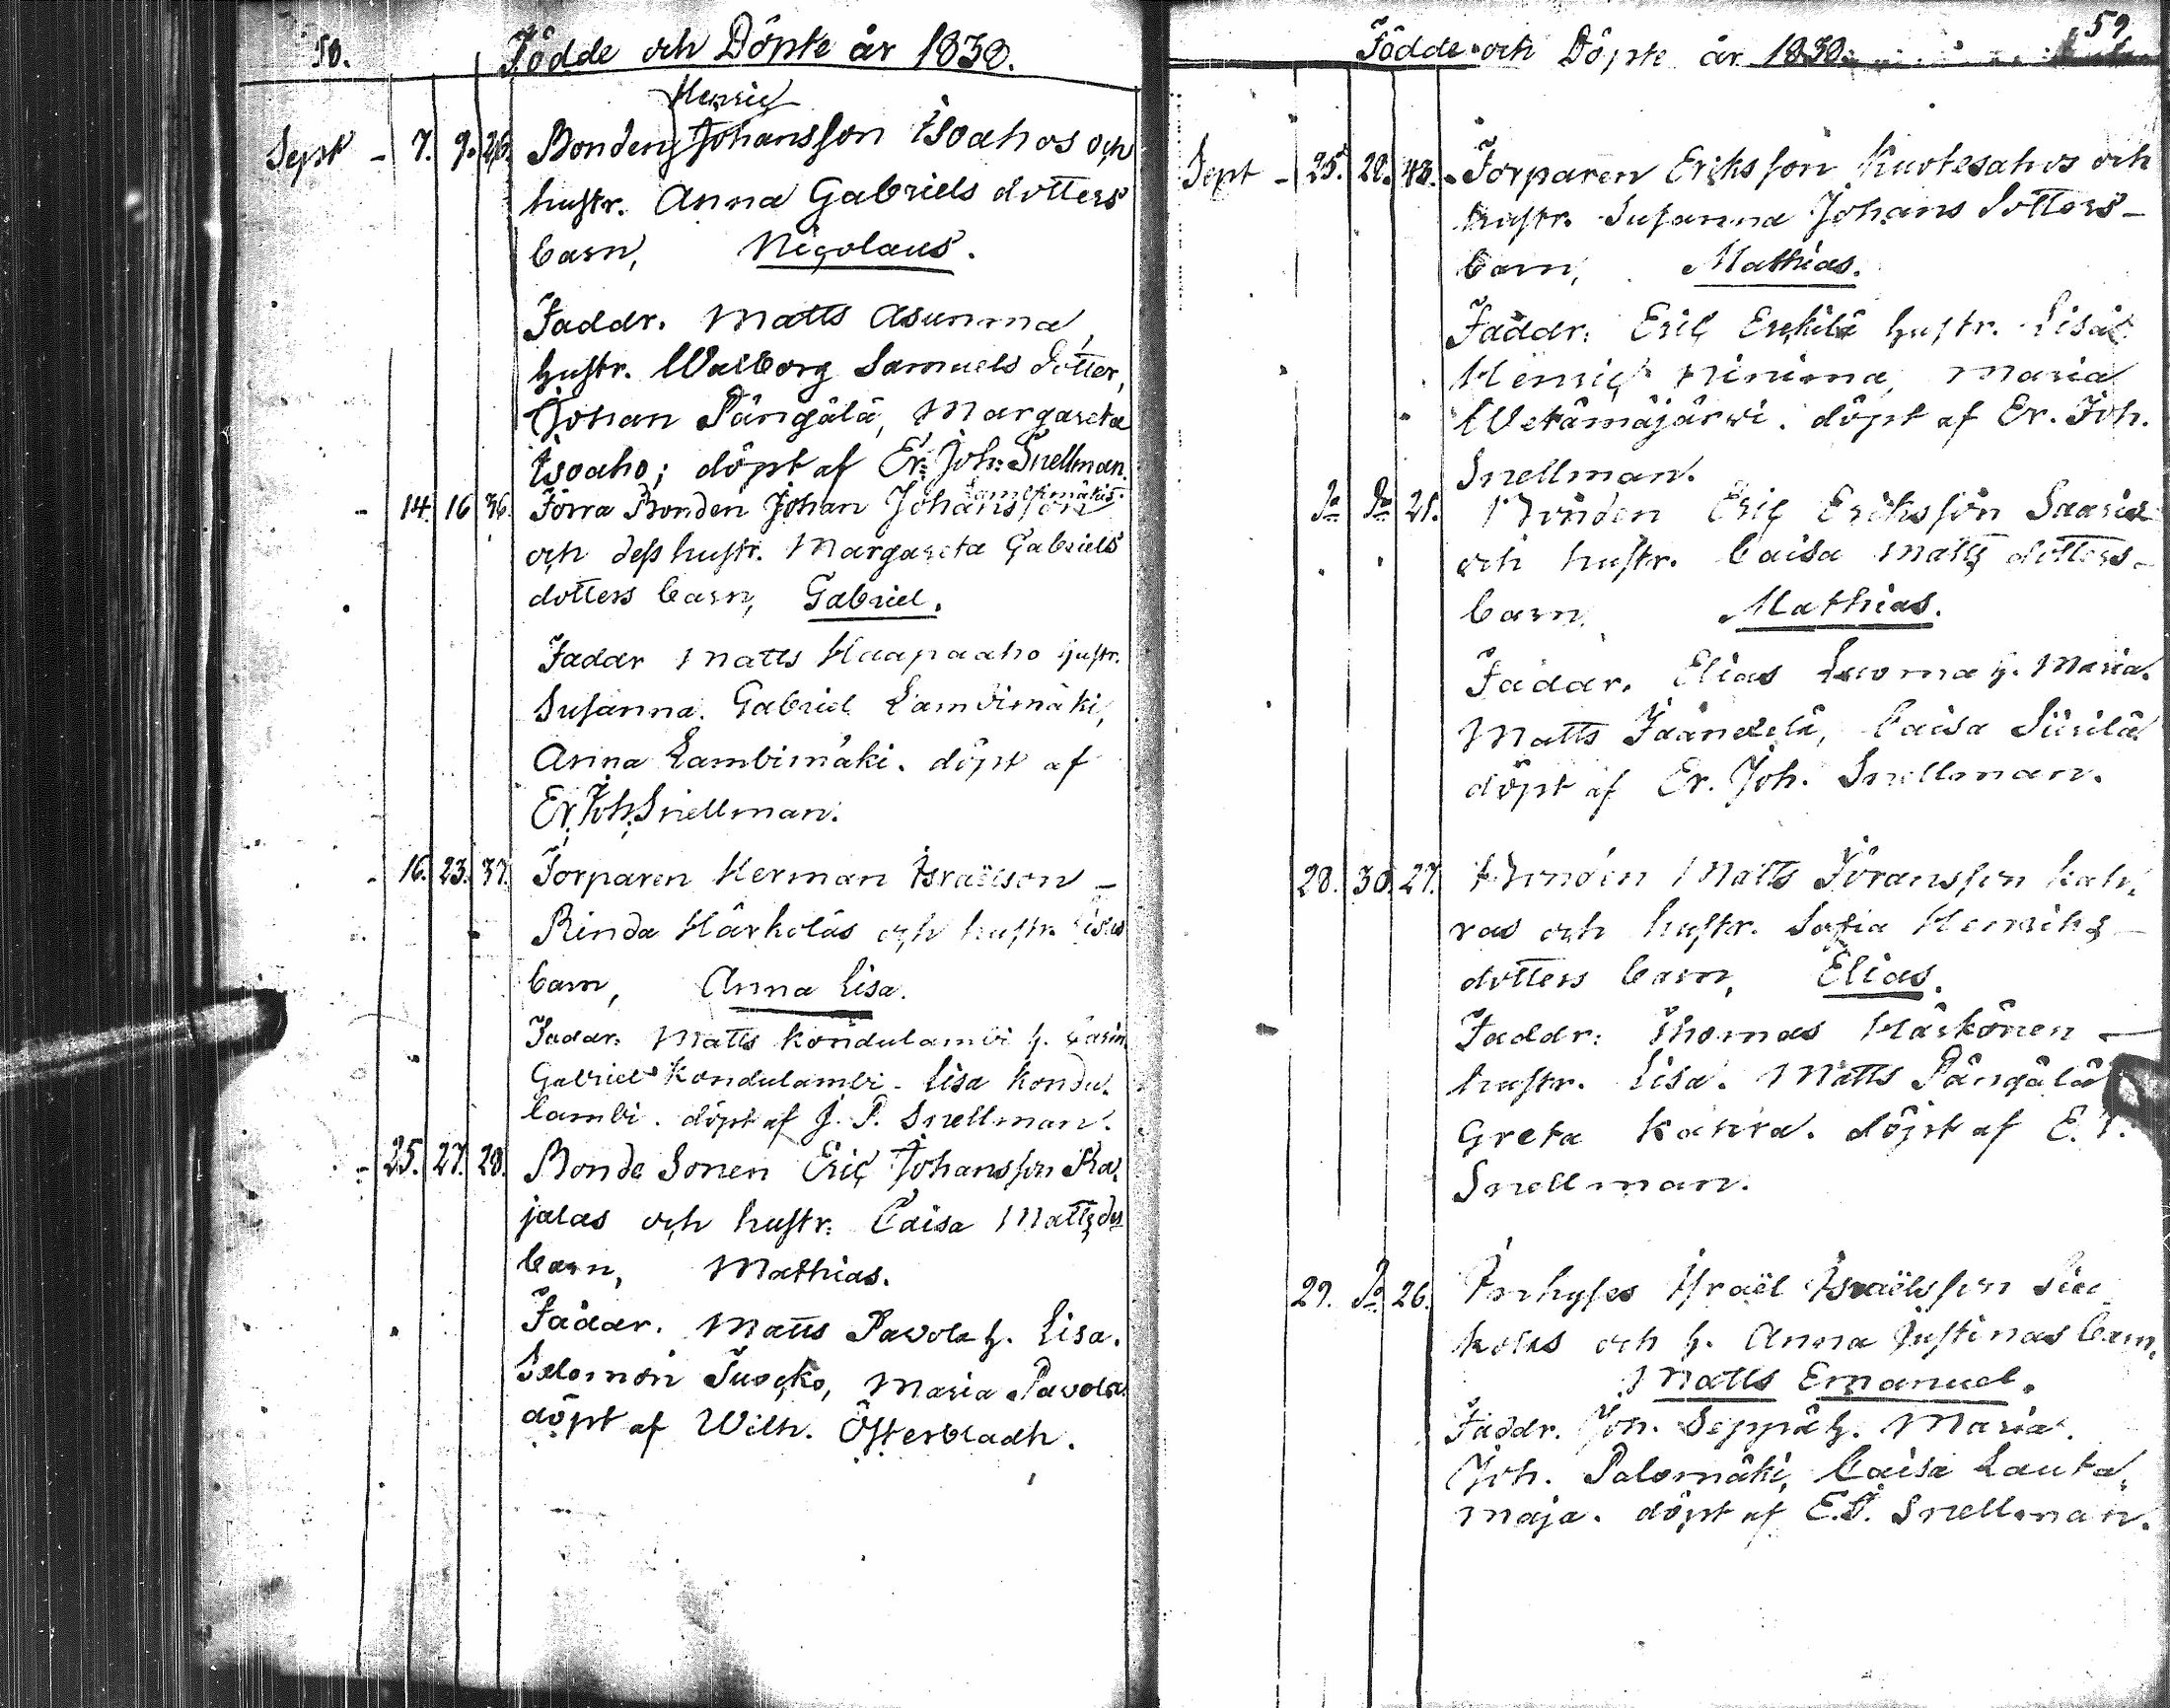 58.
Födde och Döpte år 1838.
Henric
Sept - 7. 9. 26. Bonden Johansson Isoahos och
hustr. Anna Gabriels dotters
barn, Nicolaus.
Faddr. Matts Asunma,
hustr. Walborg Samuels dotter,
Johan Pängälä, Margareta
Isoaho; döpt af Er. Joh: Snellman.
Lambimäkis
- 14. 16 36. Förra Bonden Johan Johansson
och dess hustr. Margareta Gabriels
dotters barn, Gabriel.
Faddr Matts Haapaaho hustr.
Susanna. Gabriel Lambimäki,
Anna Lambimäki. döpt af
Er. Joh. Snellman.
- 16. 23. 37. Torparen Herman Israëlson -
Rinda Härkoläs och hustr. Lisas
barn, Anna Lisa.
Faddr. Matts Kondulambi h. Carin.
Gabriel Kondulambi - Lisa Kondu-
lambi. döpt af J. P. Snellman.
- 25. 27. 28. Bonde Sonen Eric Johansson Ra-
jalas och hustr: Caisa Matts dr
barn, Mathias.
Faddr. Matts Pavola h. Lisa.
Salomon Tuocko, Maria Pavola
döpt af Wilh. Österbladh.
59
Födde och Döpte år 1838.
Sept - 25. 28. 43. Torparen Eriksson Kuotesahos och
hustr. Susanna Johans dotters-
barn, Mathias.
Faddr: Eric Erckilä hustr. Lisa.
Henric Ninima, Maria
Wetämäjärwi. döpt af Er. Joh.
Snellman.
Do Do 21. Bonden Eric Eriksson Saaris
och hustr. Caisa Matts dotters-
barn, Mathias.
Faddr. Elias Luoma h. Maria.
Matts Jäändilä, Caisa Siirilä
döpt af Er. Joh. Snellman.
28. 30. 27. Bonden Matts Göransson Kah-
ras och hustr. Sofia Henriks-
dotters barn, Elias.
Faddr: Thomas Härkönen -
hustr. Lisa. Matts Pängälä
Greta Kahra. döpt af E.
Snellman.
29. Do 26. Inhyses Israël Israëlsson
kolas och h. Anna Justinas barn,
Matts Emanuel.
Faddr. Joh. Seppä h. Maria.
Joh. Palomäki, Caisa Lauta-
maja. döpt af E.J. Snellman.